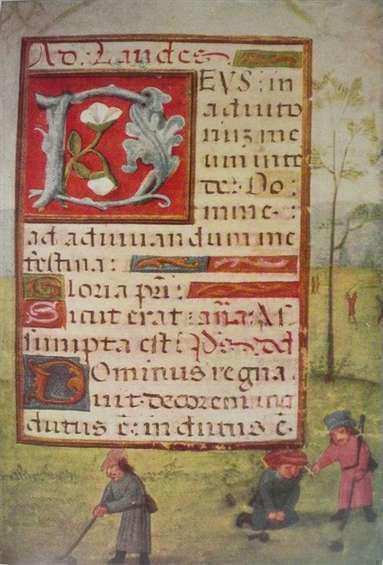 Ad. Laudes
DEVS: in
adiuto
riuz me
um inte
de: Do
mine
ad adiuuandum me
festina:
Gloria pri:
Sicut erat: aña: As
sumpta est: Ps
Dominus regna
uit: decorem in
dutus e: indutus e